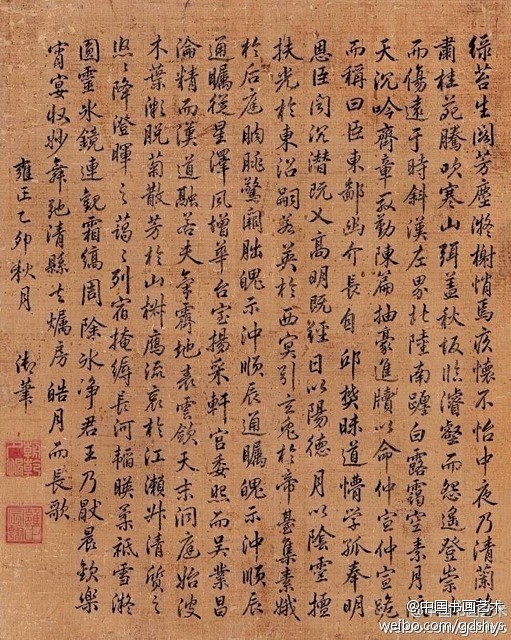 綠苔生閣芳塵凝榭悄焉疚懷不怡中夜乃清蘭
肅桂苑騰吹寒山弭蓋秋坂臨濬壑而怨遙登崇
而傷遠于時斜漢左界北陸南躔白露靄空素月
天沉吟齊章殷勤陳篇抽毫進牘以命仲宣仲宣跪
而稱曰臣東鄙幽介長自邱樊昧道懵學孤奉明
恩臣聞沉潛既义高明既經日以陽德月以陰靈擅
扶光於東沼嗣若英於西冥引玄兔於帝臺集素娥
於后庭朒脁警闕朏魄示沖順辰通矚魄示沖順辰
通矚從星澤風增華台室揚采軒宮委照而吳業昌
淪精而漢道融若夫氣霽地表雲斂天末洞庭始波
木葉微脫菊散芳於山椒雁流哀於江瀨升清質之
悠々降澄暉之藹々列宿掩縟長河韜映柔祇雪凝
圓靈水鏡連觀霜縞周除冰淨君王乃厭晨歡樂
宵宴收妙舞弛清縣去燭房皓月而長歌
雍正乙卯秋月 御筆
@中國书画艺术
weibo.com/gdshys